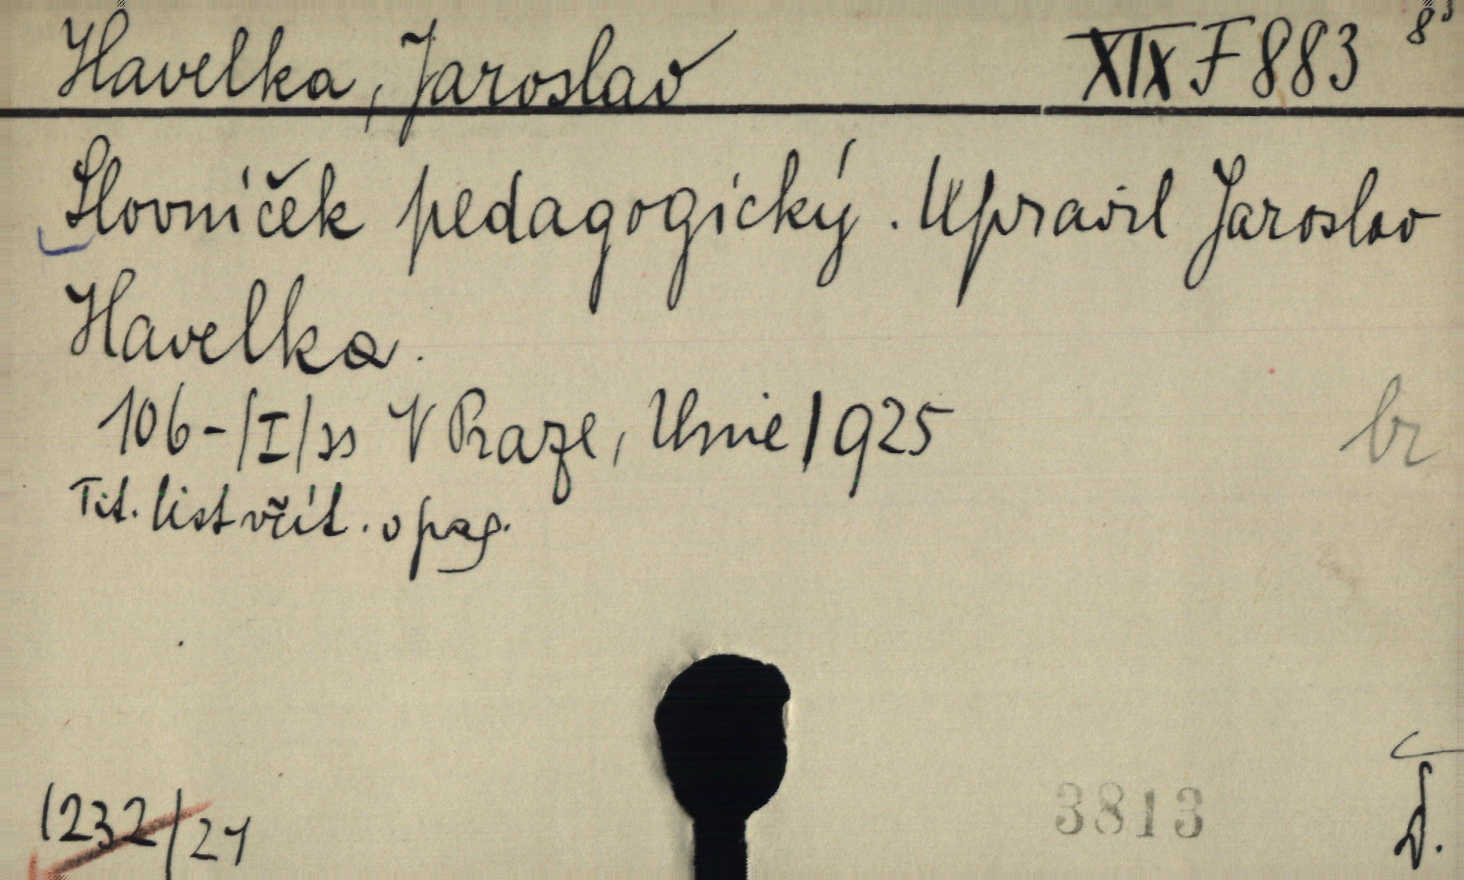 Havelka, Jaroslav XIX F 883 8°
Slovníček pedagogický. Upravil Jaroslav
Havelka.
106-/I/ss V Praze, Unie 1925
Tit. list včít. v pag.
br
1232/27
3813